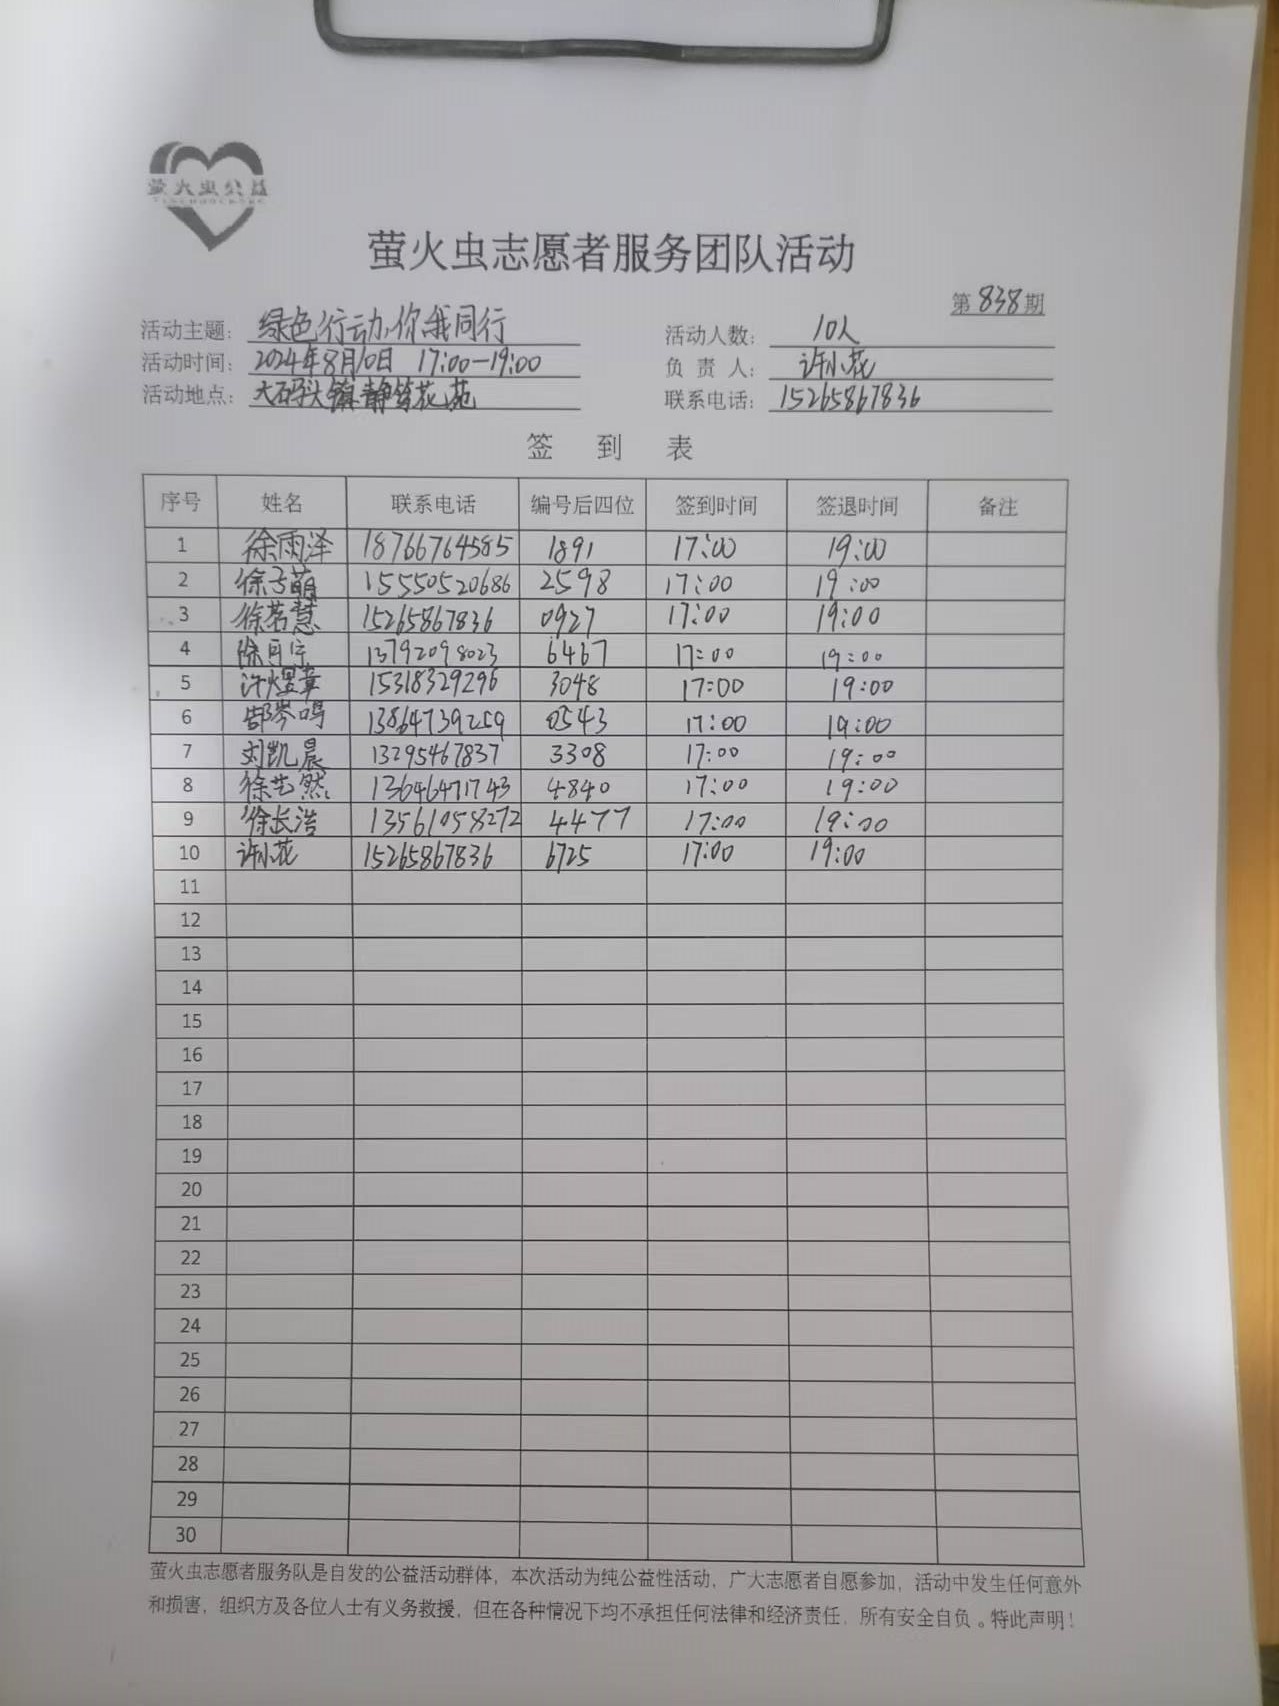 萤火虫公益
萤火虫志愿者服务团队活动
第838期
活动主题：绿色行动，你我同行 活动人数：10人
活动时间：2024年8月10日 17:00—19:00 负责人：许小花
活动地点：大码头镇静馨花苑 联系电话：15265867836
签到表
序号 姓名 联系电话 编号后四位 签到时间 签退时间 备注
1 徐雨泽 18766764585 1891 17:00 19:00
2 徐子萌 15550520686 2598 17:00 19:00
3 徐茗慧 15265867836 0927 17:00 19:00
4 13792098023 6467 17:00 19:00
5 许煜章 15318329296 3048 17:00 19:00
6 13864739259 0543 17:00 19:00
7 刘凯晨 13295467837 3308 17:00 19:00
8 徐艺然 13646471743 4840 17:00 19:00
9 徐长浩 13561058272 4477 17:00 19:00
10 许小花 15265867836 6725 17:00 19:00
11
12
13
14
15
16
17
18
19
20
21
22
23
24
25
26
27
28
29
30
萤火虫志愿者服务队是自发的公益活动群体，本次活动为纯公益性活动，广大志愿者自愿参加，活动中发生任何意外
和损害，组织方及各位人士有义务救援，但在各种情况下均不承担任何法律和经济责任，所有安全自负。特此声明！